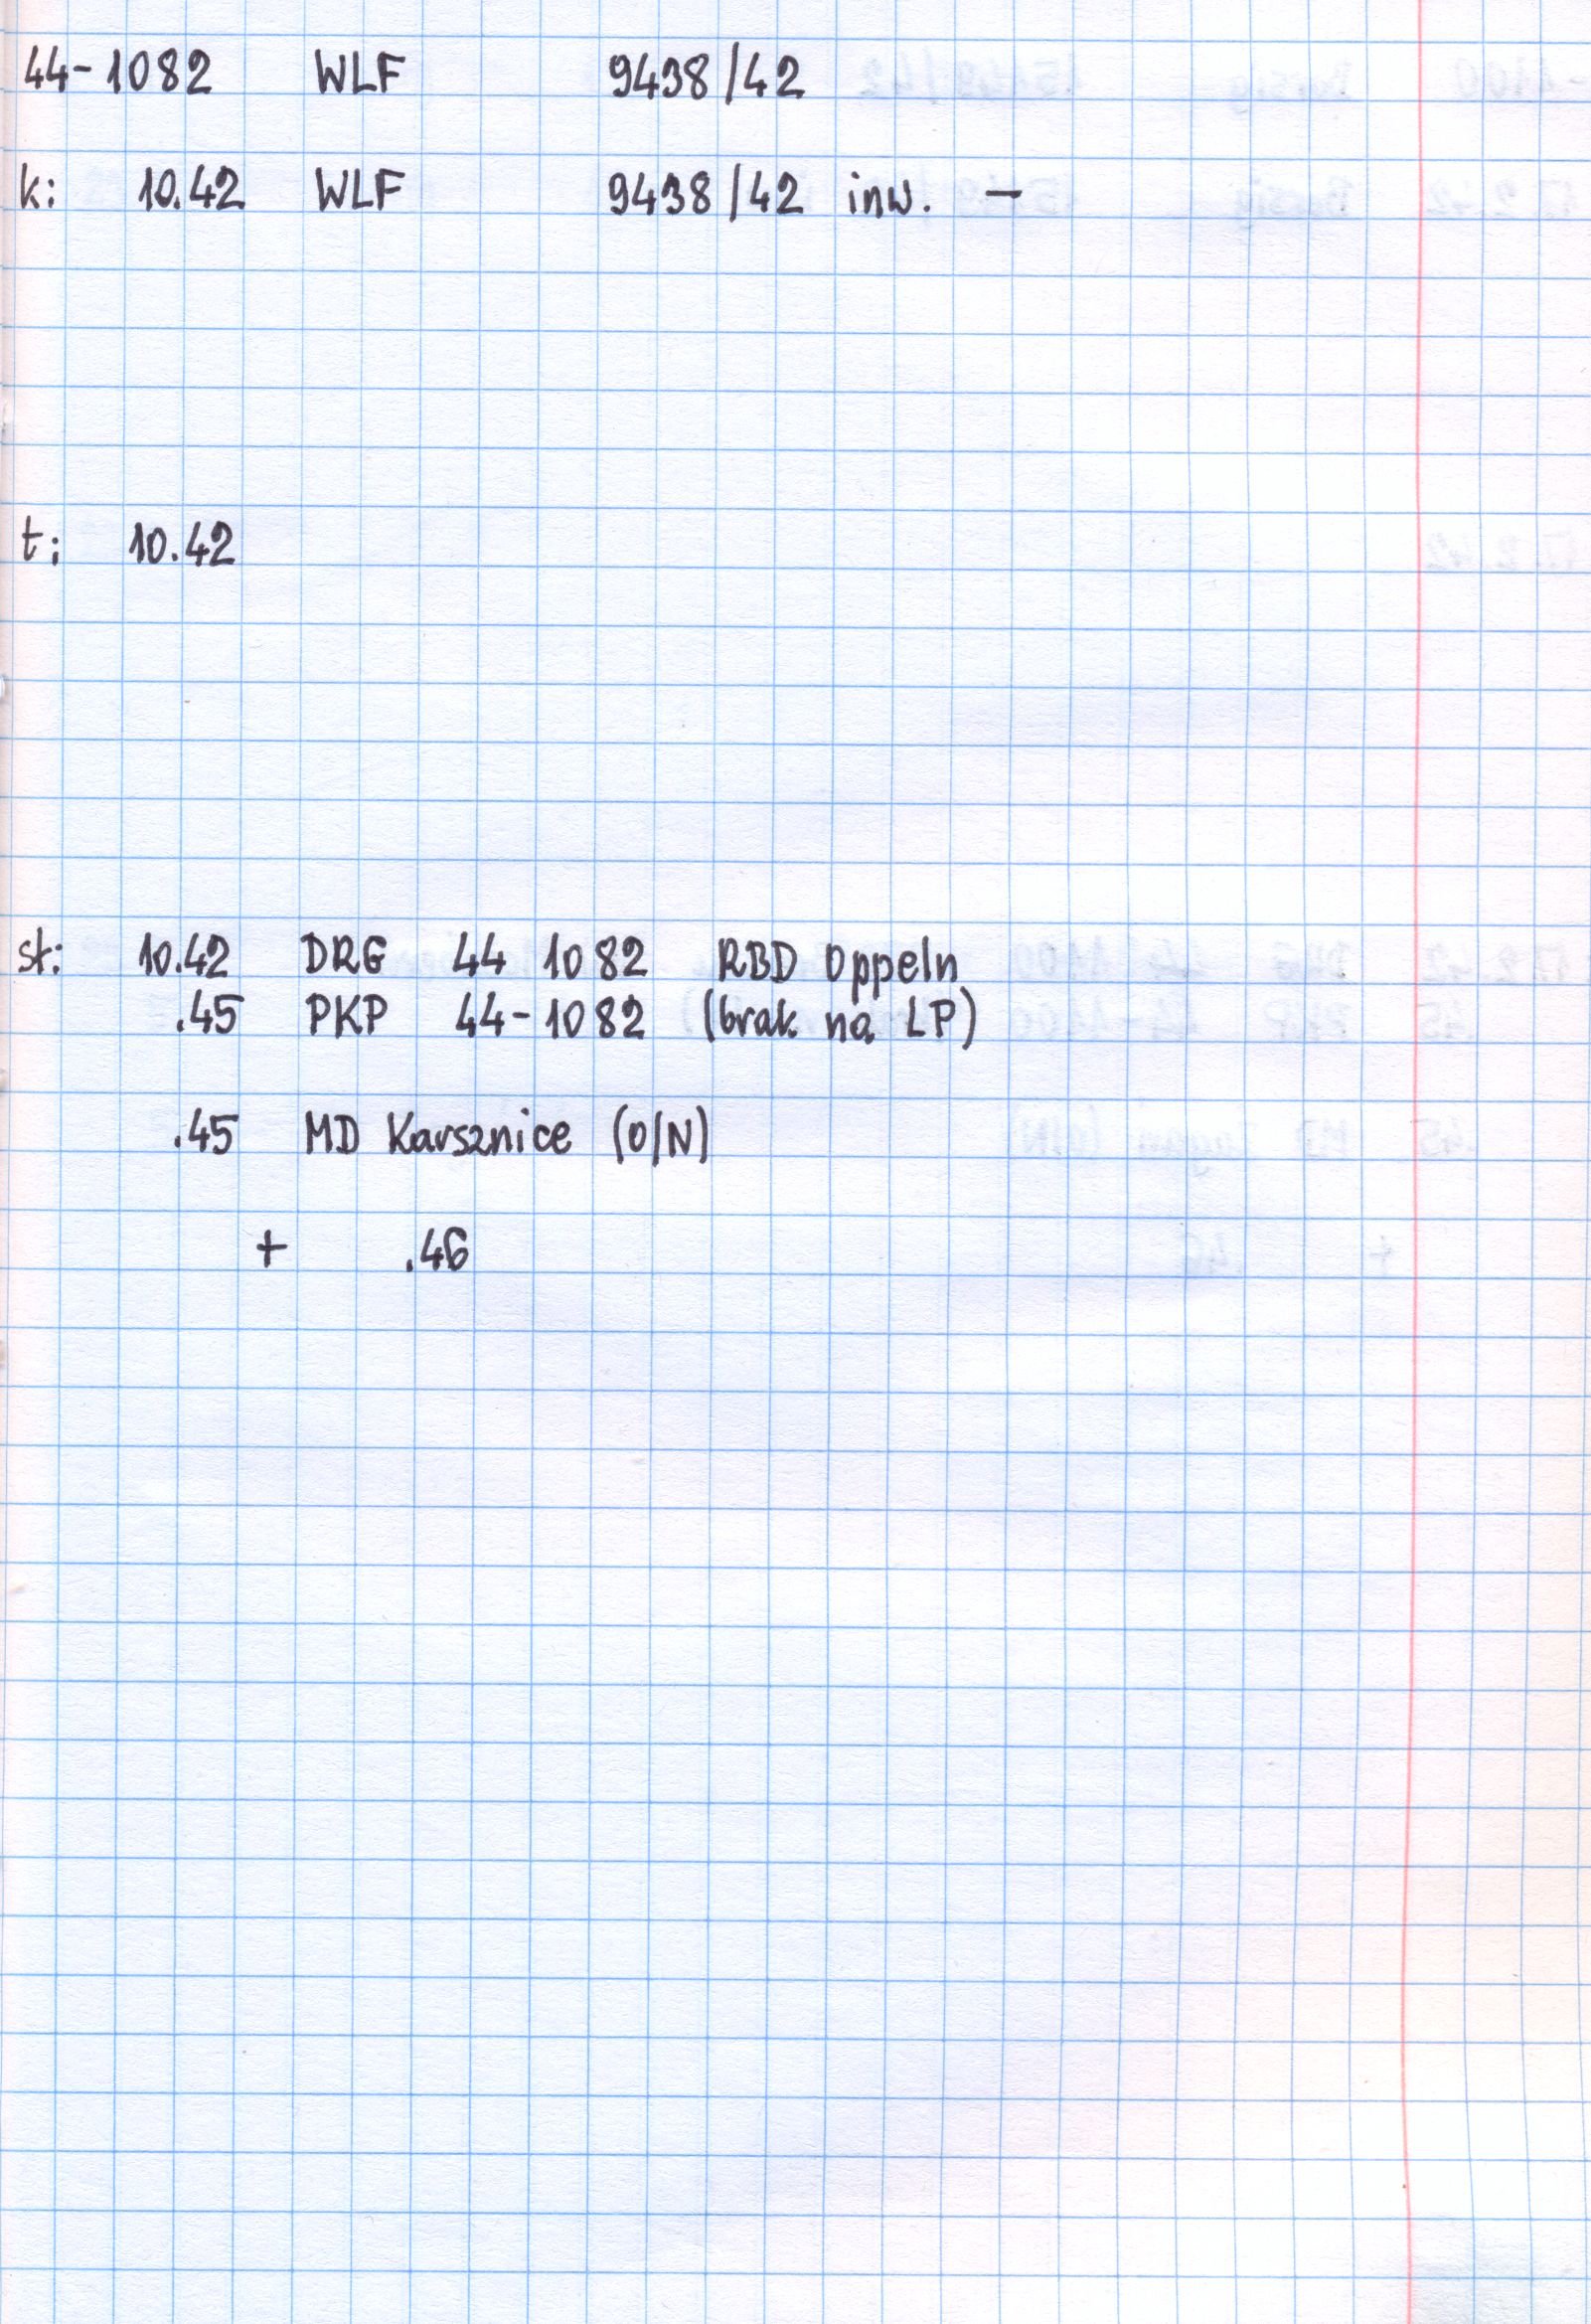 44-1082 WLF 9438/42
k: 10.42 WLF 9438/42 inw. —
t: 10.42
st: 10.42 DRG 44 1082 RBD Oppeln
.45 PKP 44-1082 (brak na LP)
.45 MD Karsznice (O/N)
+ .46